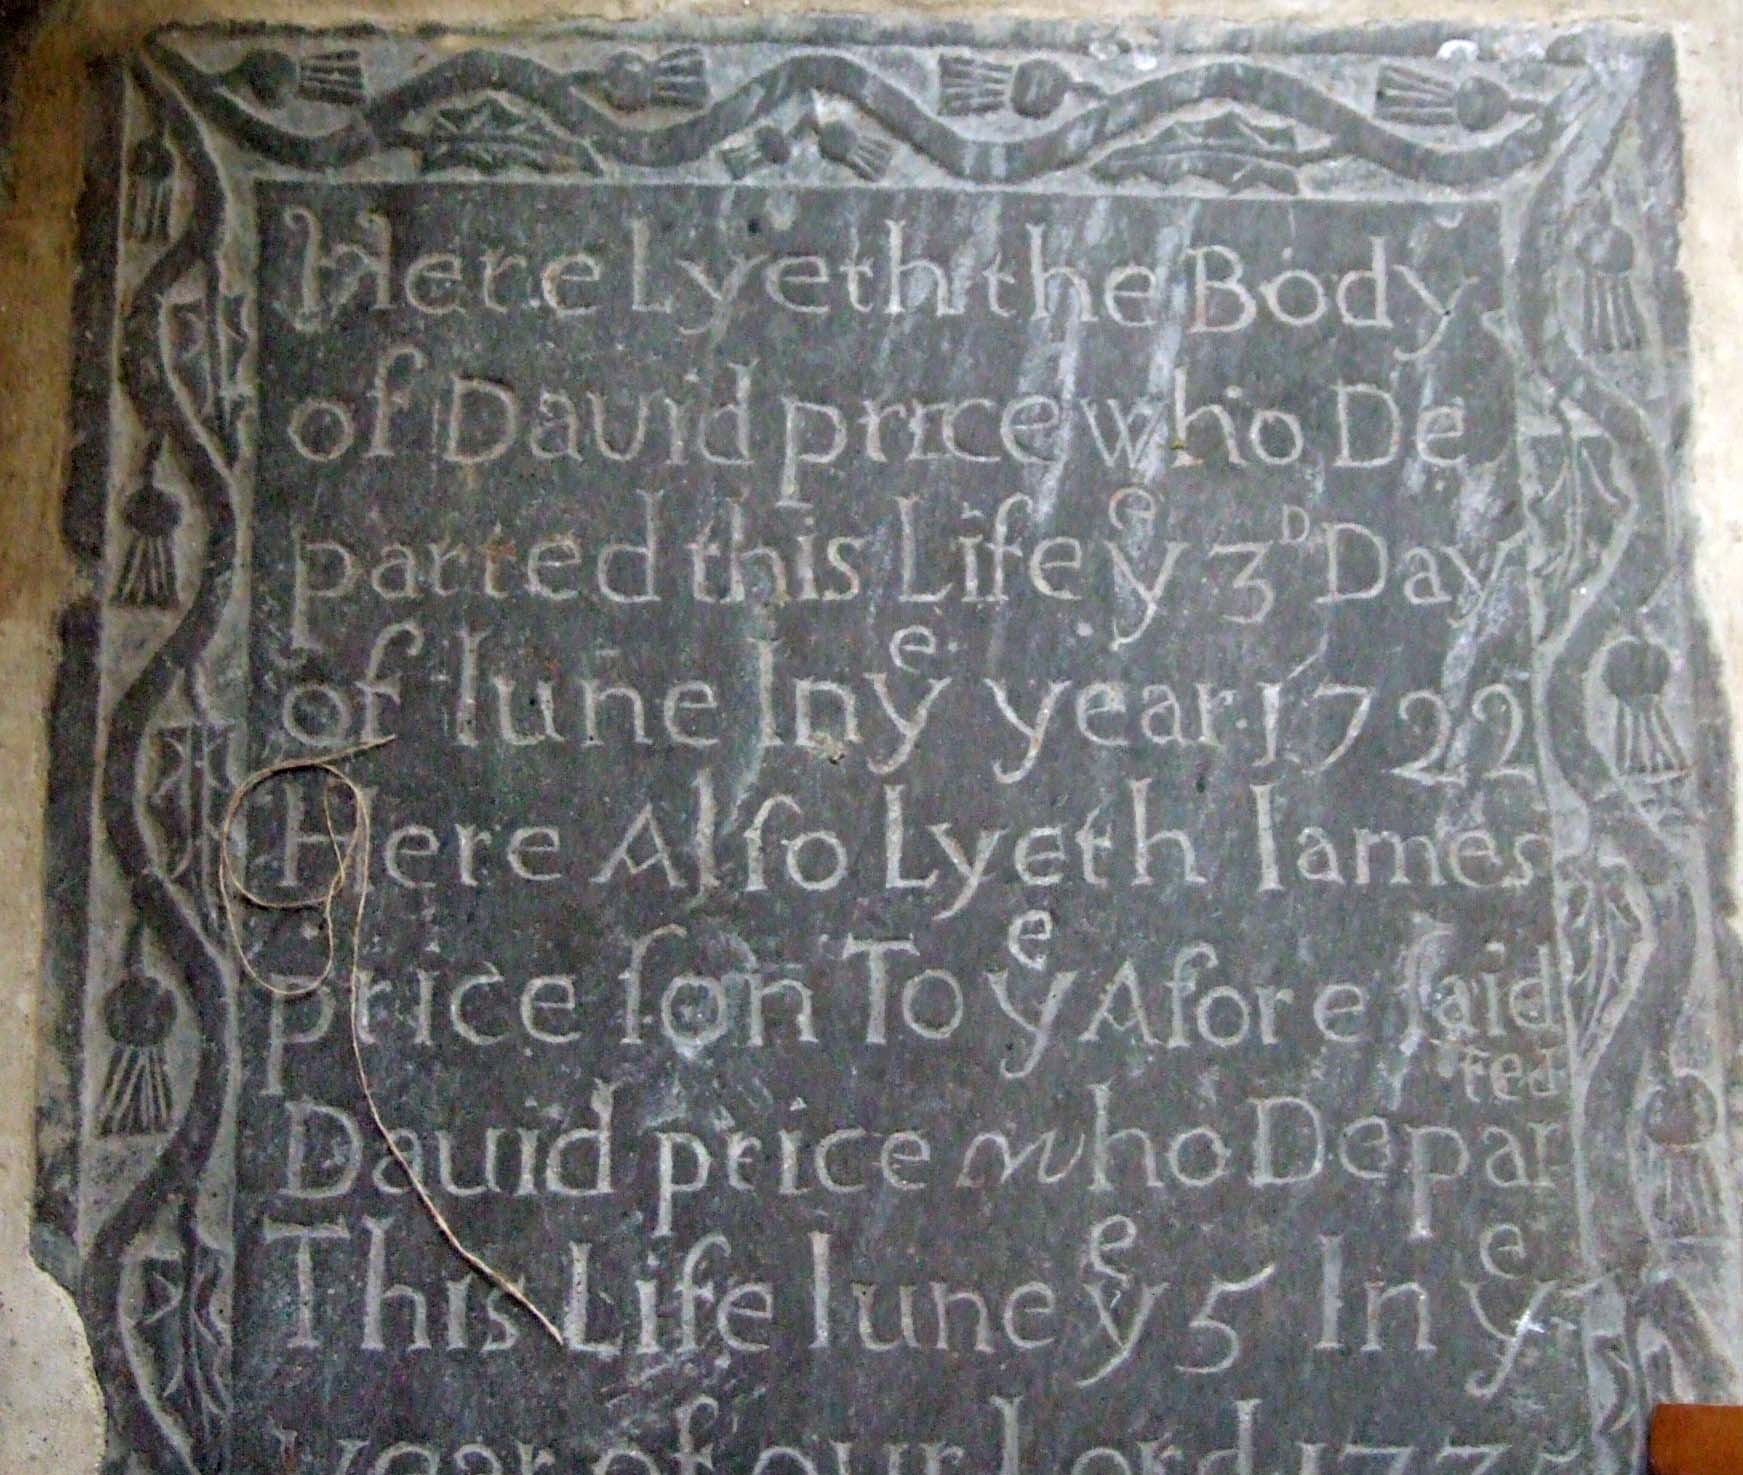 Here Lyeth the Body
of Dauid price who De
parted this Life yͤ 3ᴰ Day
of Iune In yͤ year 1722
Here Alſo Lyeth Iames
price ſon To yͤ Afore ſaid
Dauid price who Depar ted
This Life Iune yͤ 5 In yͤ
year of our Lord